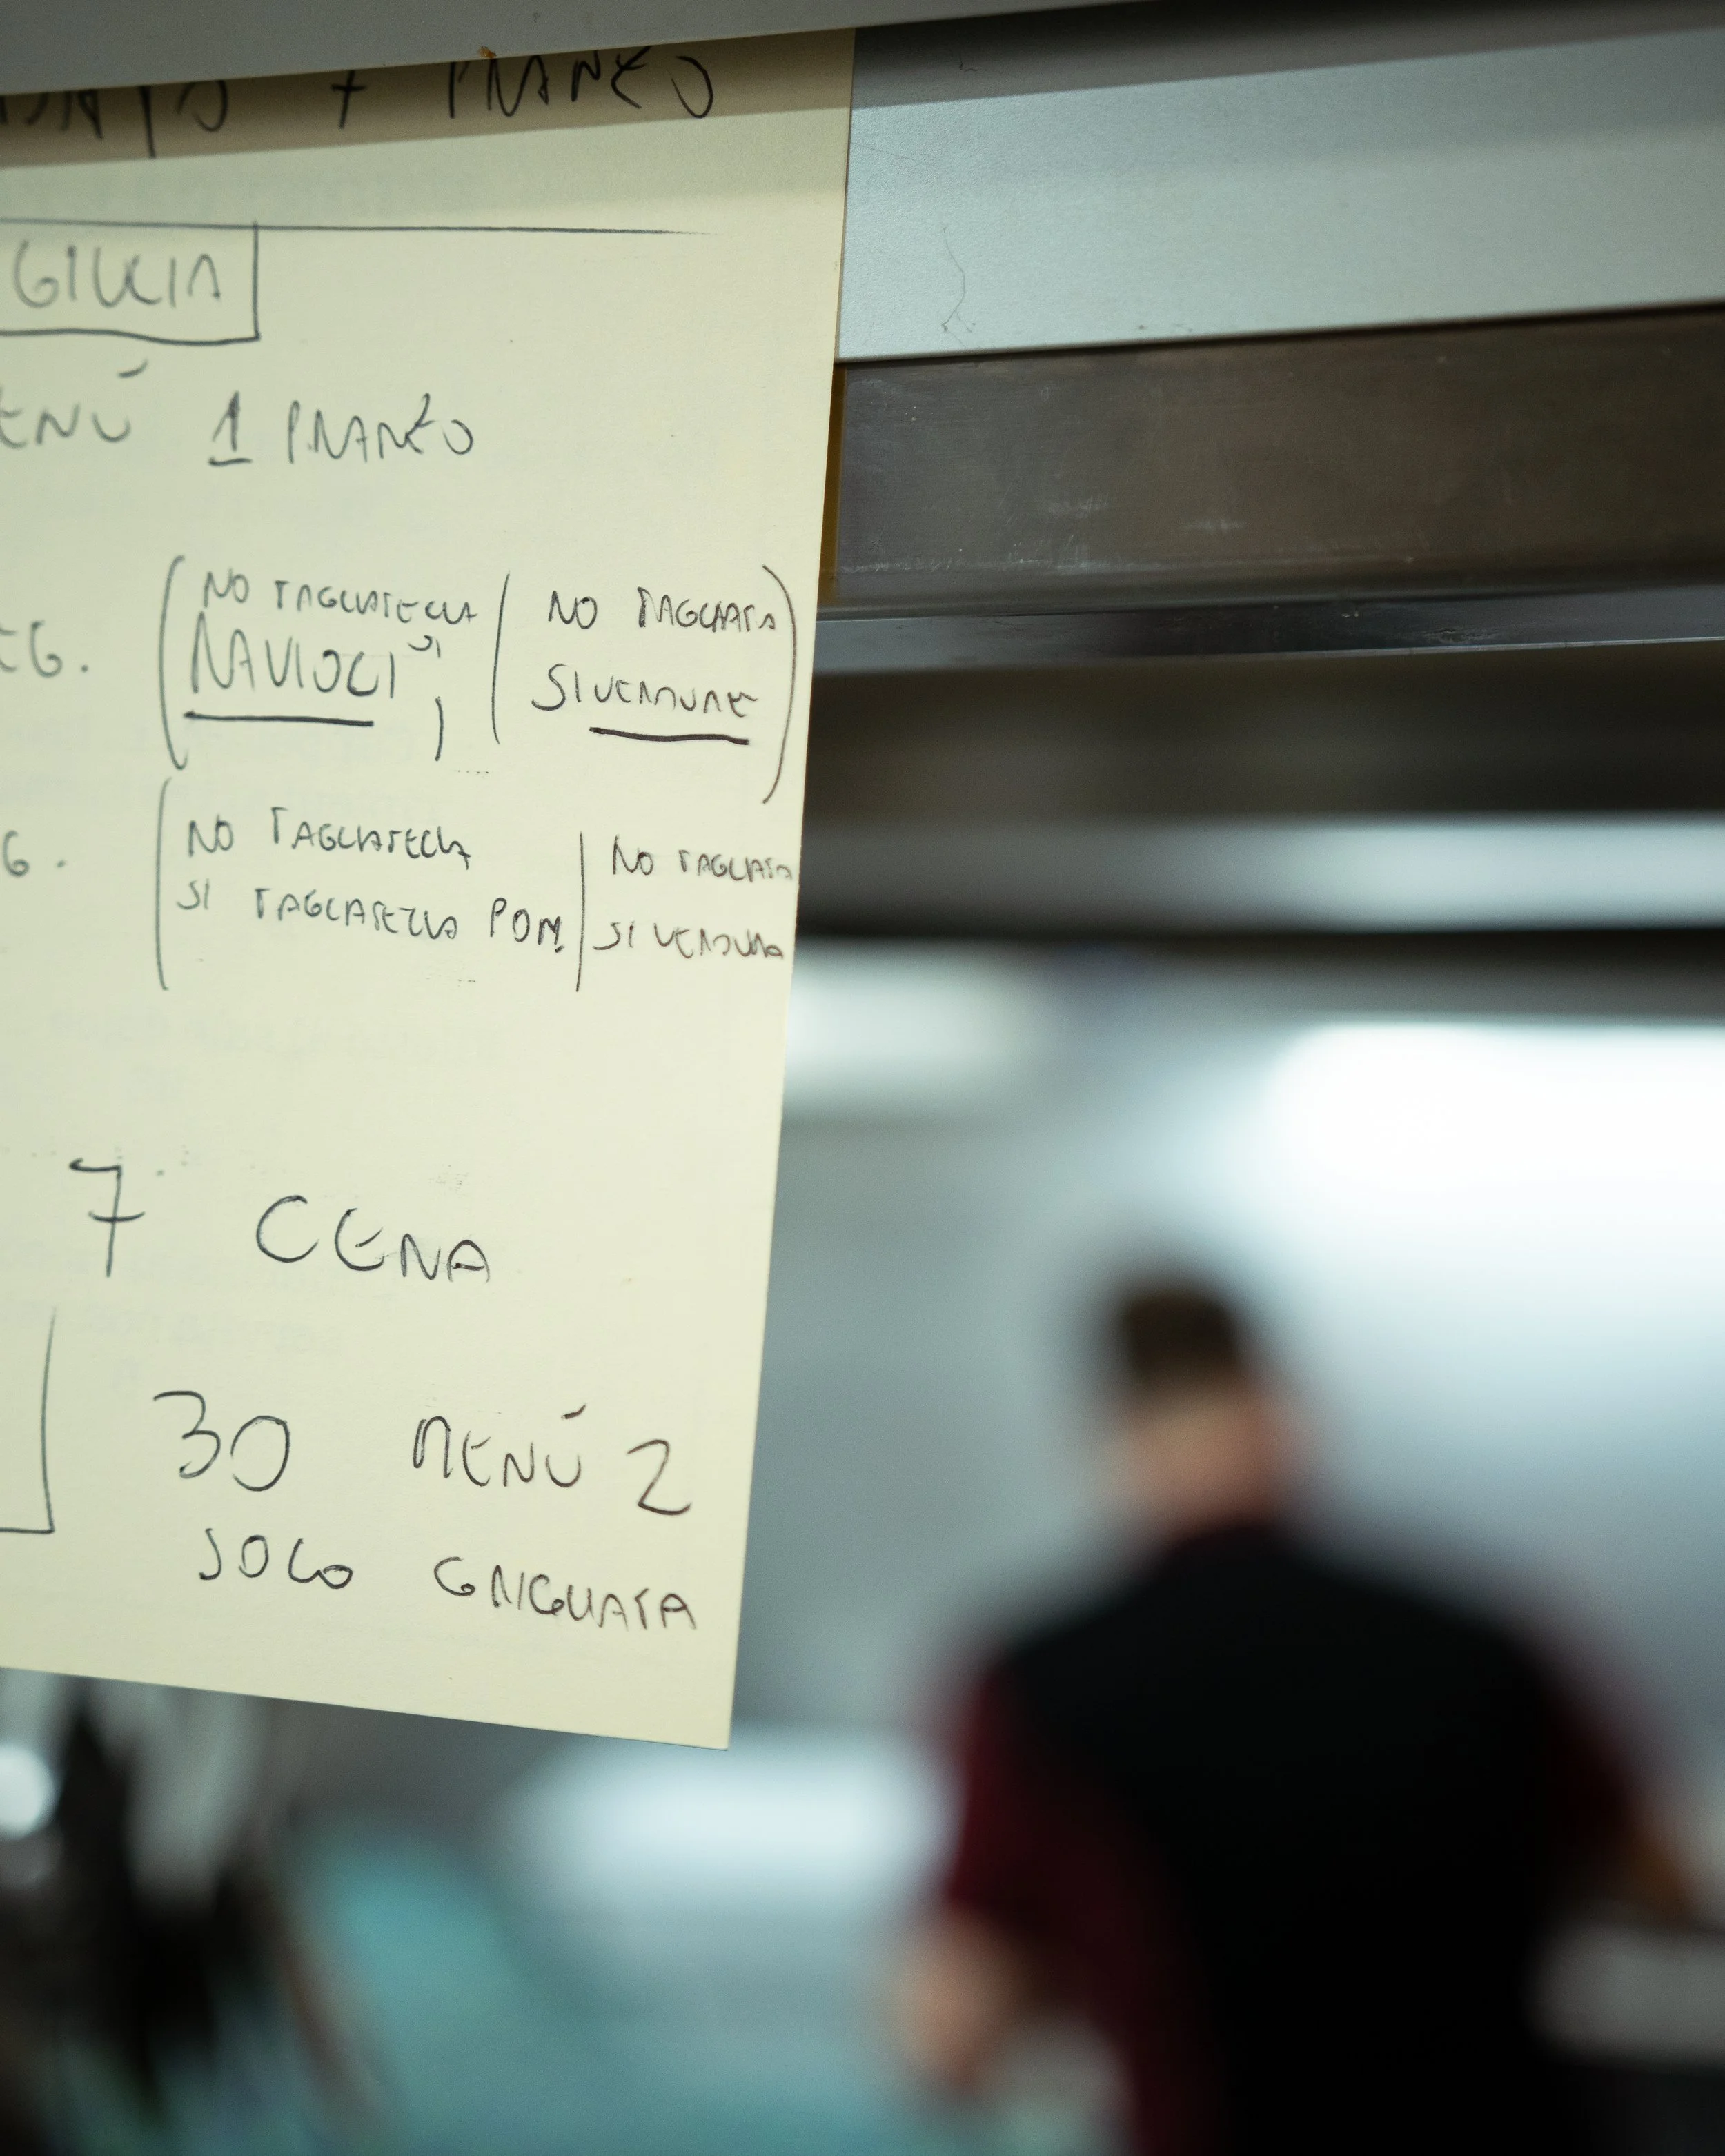 + PRANZO
GIULIA
ENÚ 1 PRANZO
NO TAGLIATELLA
RAVIOLI SI
NO TAGLIATA
SI VERDURE
EG.
NO TAGLIATELLA
SI TAGLIATELLA POM.
NO TAGLIATA
SI VERDURA
G.
7 CENA
30 MENÚ 2
SOLO GRIGLIATA